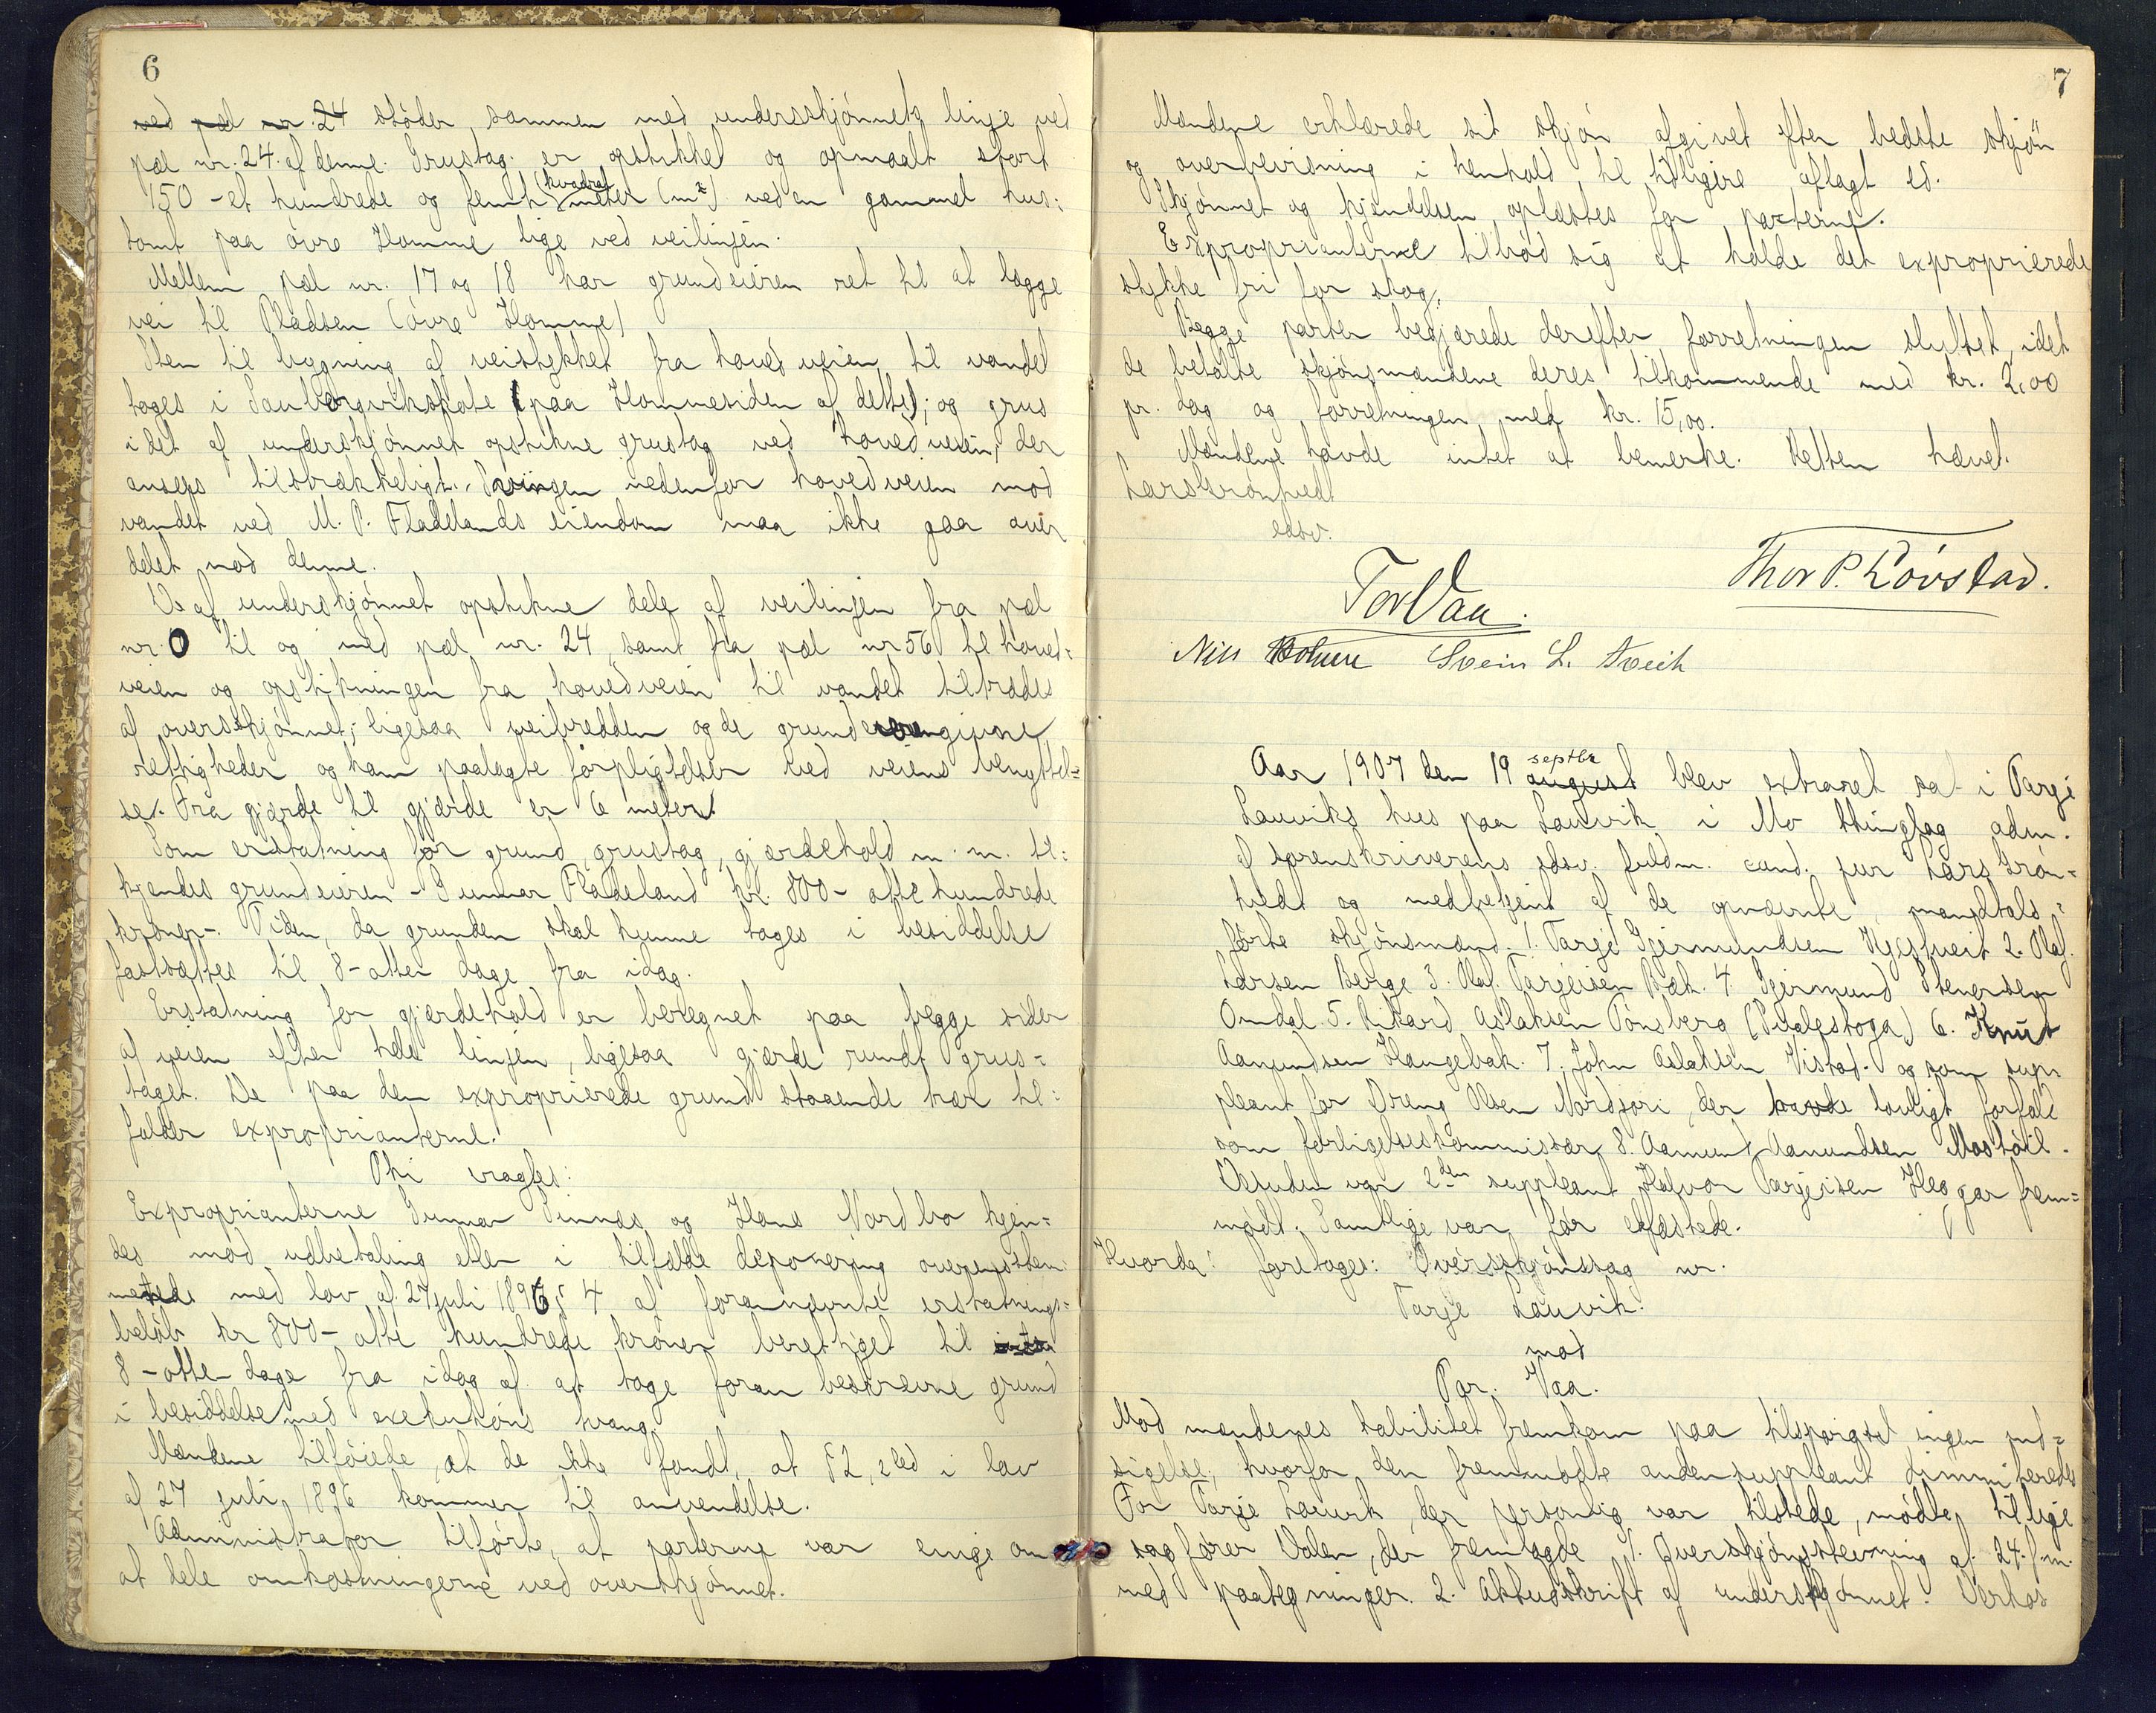 6
ved pæl nr. 24 støder sammen med underskjønnets linje ved
pæl nr. 24 af denne. Grustag er opstikket og opmaalt stort
150 - et hundrede og femti (kvadrat meter (m²) ved en gammel hus=
tomt paa övre Homme lige ved veilinjen.
Mellem pæl nr. 17 og 18 har grundeieren ret til at lægge
vei til Pladsen (övre Homme)
Sten til bygning af veistykket fra hovedveien til vandet
tages i paa Hommesiden af dette; og grus
i det af underskjönnet opstikne grustag ved hovedveien, der
ansees tilstrækkeligt. Svingen nedenfor hovedveien mod
vandet ved M. P. Fladelands eiendom maa ikke gaa over
delet mod denne.
De af underskjönnet opstikne dele af veilinjen fra pæl
nr. 0 til og med pæl nr. 24, samt fra pæl nr 56 til hoved=
veien og opstikningen fra hovedveien til vandet tiltrædes
af overskjönnet; ligesaa veibredden og de grundeieren givne
rettigheder og ham paalagte forpligtelser ved veiens benyttel=
se. Fra gjærde til gjærde er 6 meter.
Som erstatning for grund, grustag, gjærdehold m. m. til=
kjendes grundeieren - Gunnar Fladeland kr. 800 - otte hundrede
kroner -. Tiden, da grunden skal kunne tages i besiddelse
fastsættes til 8 - otte dage fra idag.
Erstatning for gjærdehold er beregnet paa begge sider
af veien efter hele linjen, ligesaa gjærde rundt grus=
taget. De paa den exproprierede grund staaende trær til=
falder exproprianterne.
Thi eragtes:
Exproprianterne Gunnar Tinnæs og Hans Nordbø kjen=
des mod udbetaling eller i tilfælde deponering overensstem=
mende med lov af 27 juli 1896 § 4 af forannævnte erstatnings=
beløb kr 800 - otte hundrede kroner berettiget til
8 - otte dage fra idag af at tage foran beskrevne grund
i besiddelse med exekutions tvang.
Mændene tilföiede, at de ikke fandt, at § 2, 2 led i lov
af 27 juli 1896 kommer til anvendelse.
Administrator tilförte, at parterne var enige om
at dele omkostningerne ved overskjönnet.
7
Mændene erklærede sit skjön afgivet efter bedste skjön
og overbevisning i henhold til tidligere aflagt ed.
Skjönnet og kjendelsen oplæstes for parterne.
Exproprianterne tilbød sig at holde det exproprierede
stykke fri for skog.
Begge parter begjærede derefter forretningen sluttet, idet
de betalte skjönsmændene deres tilkommende med kr. 2,00
pr. dag og forretningen med kr. 15,00.
Mændene havde intet at bemerke. Retten hævet.
Lars Grönhedt
edsv.
Tor Vaa. Thor P. Lövstad.
Nils Svein L. Tveit
Aar 1907 den 19 august septbr blev extraret sat i Tarje
Lauviks hus paa Lauvik i Mo thinglag adm.
af sorenskriverens edsv. fuldm. cand. jur Lars Grön=
hedt og medbetjent af de opnævnte, mandtals=
förte skjönsmænd. 1. Tarje Gjermundsen Kjestveit 2. Olaf
Larsen Berge 3. Olaf Tarjeisen Bæk. 4. Gjermund Stenersen
Omdal 5. Rikard Aslaksen Tönsberg 6. Knut
Aamundsen Haugebak. 7. John Aslaksen Vistad. og som sup=
pleant for Dreng Olsen Nordjori, der havde lovligt forfald
som forligelseskommissær 8. Aamund Aanundsen Mostöil.
Desuden var 2den suppleant Halvor Tarjeisen Heggar frem=
mödt. Samtlige var för edfæstede.
Hvorda: foretages: Overskjönssag nr.
Tarje Lauvik.
mod
Tor. Vaa.
Mod mændenes habilitet fremkom paa tilspörgsel ingen ind=
sigelse, hvorfor den fremmödte anden suppleant dimmiteredes
For Tarje Lauvik, der personlig var tilstede, mödte tillige
sagförer Dalen, der fremlagde 1. Overskjönsstevning af 24. f. m.
med paategninger. 2. Aktudskrift af underskjönnet. Derhos